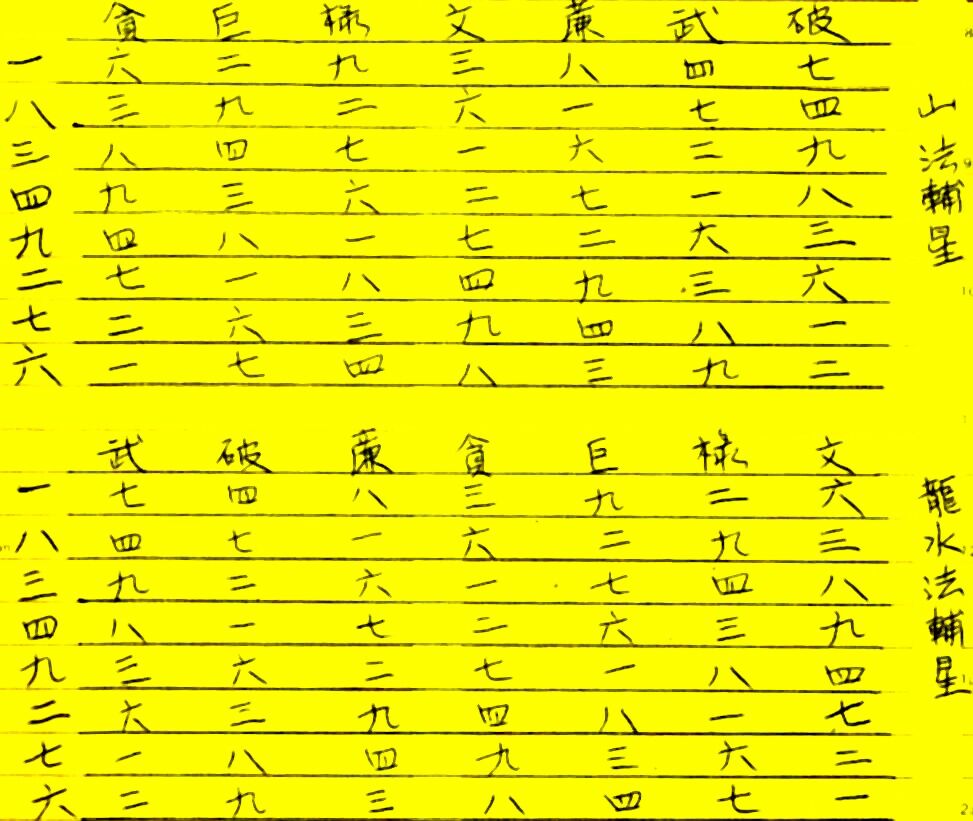 貪 巨 祿 文 廉 武 破
一 六 二 九 三 八 四 七
八 三 九 二 六 一 七 四
三 八 四 七 一 六 二 九
四 九 三 六 二 七 一 八
九 四 八 一 七 二 六 三
二 七 一 八 四 九 三 六
七 二 六 三 九 四 八 一
六 一 七 四 八 三 九 二
山法輔星
武 破 廉 貪 巨 祿 文
一 七 四 八 三 九 二 六
八 四 七 一 六 二 九 三
三 九 二 六 一 七 四 八
四 八 一 七 二 六 三 九
九 三 六 二 七 一 八 四
二 六 三 九 四 八 一 七
七 一 八 四 九 三 六 二
六 二 九 三 八 四 七 一
龍水法輔星